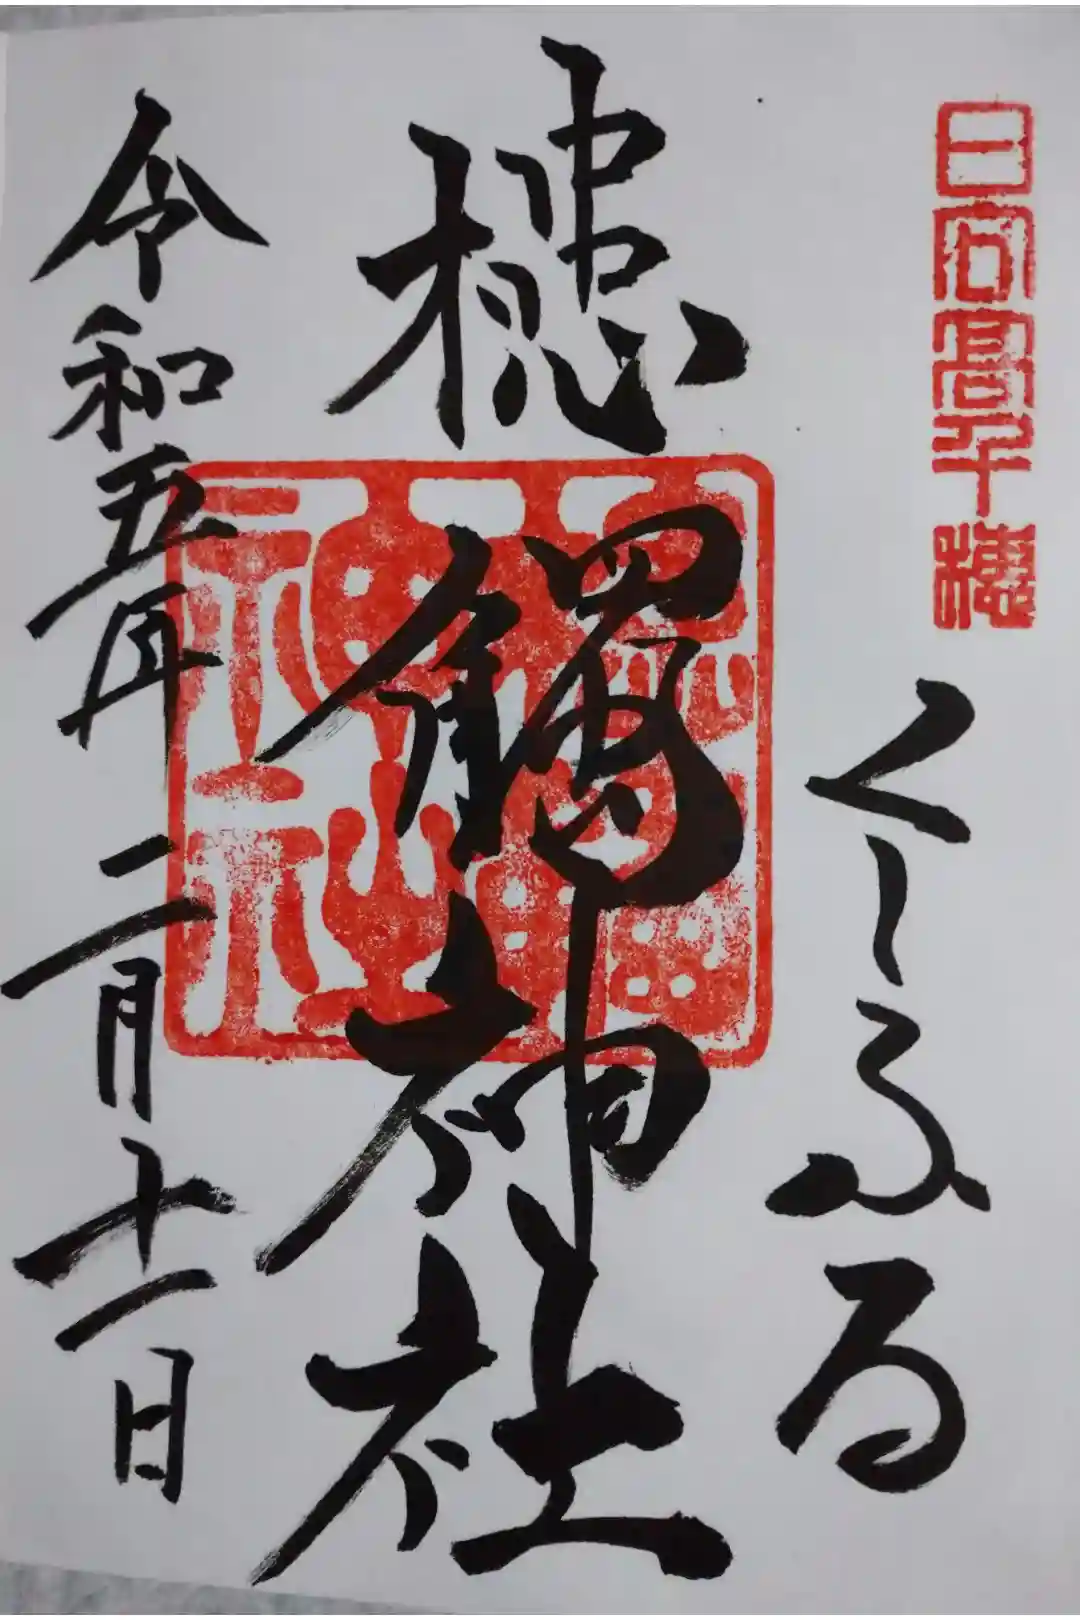 日向高千穂
くしふる
槵觸神社
令和五年二月十一日